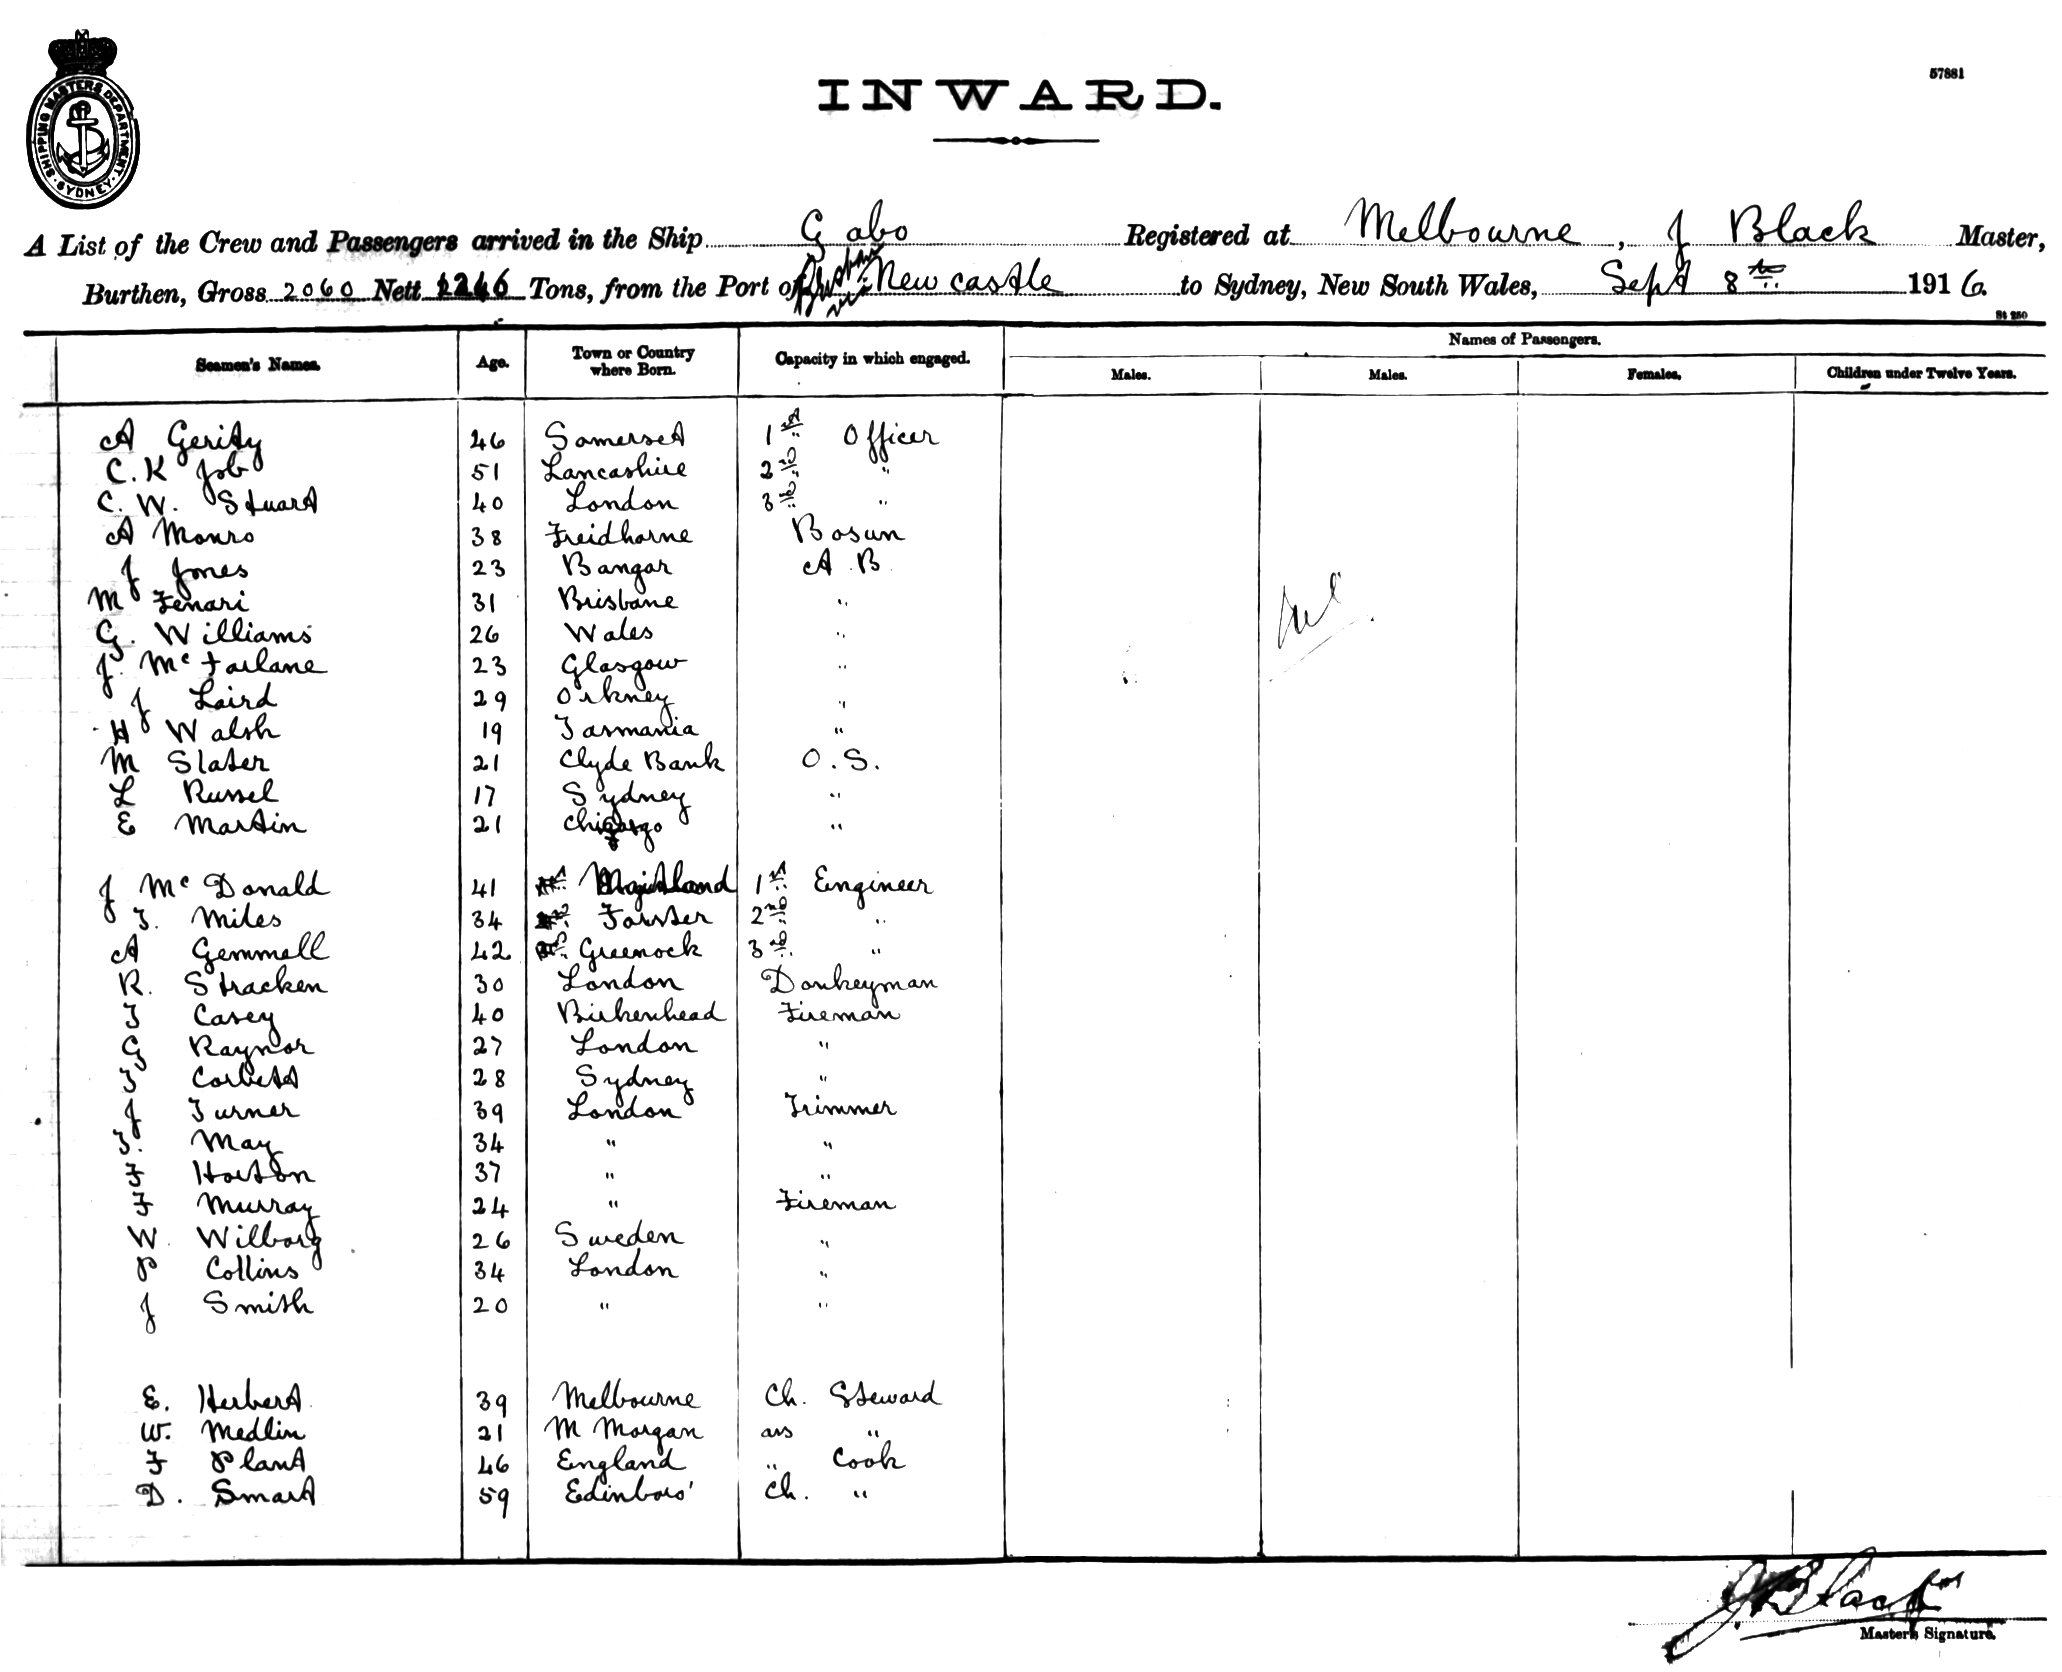 SHIPPING MASTERS DEPARTMENT
SYDNEY
57881
INWARD.
A List of the Crew and Passengers arrived in the Ship Gabo Registered at Melbourne, J Black Master,
Burthen, Gross 2060 Nett 1246 Tons, from the Port of Newcastle to Sydney, New South Wales, Sept 8th 1916.
St 250
Seamen's Names. Age. Town or Country where Born. Capacity in which engaged. Names of Passengers.
Males. Males. Females. Children under Twelve Years.
A Gerity 46 Somerset 1st Officer
C. K Job 51 Lancashire 2nd "
C. W. Stuart 40 London 3rd "
A Monro 38 Freidharne Bosun
J Jones 23 Bangor A B
M Fenari 31 Brisbane "
G. Williams 26 Wales "
J. McFarlane 23 Glasgow "
J Laird 29 Orkney "
H Walsh 19 Tasmania "
M Slater 21 Clyde Bank O. S.
L Russel 17 Sydney "
E Martin 21 Chicargo "
J McDonald 41 Maitland 1st Engineer
T. Miles 34 Forster 2nd "
A Gemmell 42 Greenock 3rd "
R. Stracken 30 London Donkeyman
T Casey 40 Birkenhead Fireman
G Raynor 27 London "
T Corbett 28 Sydney "
J Turner 39 London Trimmer
T. May 34 " "
F Horton 37 " "
F Murray 24 " Fireman
W Wilborg 26 Sweden "
P Collins 34 London "
J Smith 20 " "
Nil
E. Herbert 39 Melbourne Ch. Steward
W. Medlin 21 M Morgan ass "
F Plant 46 England " Cook
D. Smart 59 Edinboro' Ch. "
J Black
Master's Signature.